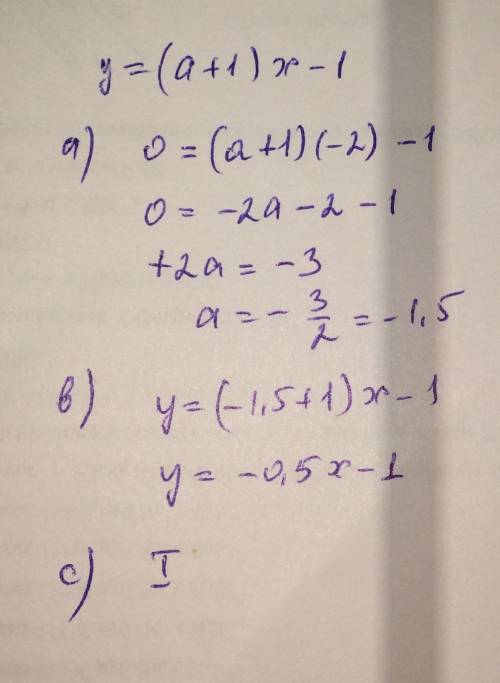 y = (a+1)x - 1
a) 0 = (a+1)(-2) - 1
0 = -2a - 2 - 1
+2a = -3
a = - 3/2 = -1,5
b) y = (-1,5+1)x - 1
y = -0,5x - 1
c) I